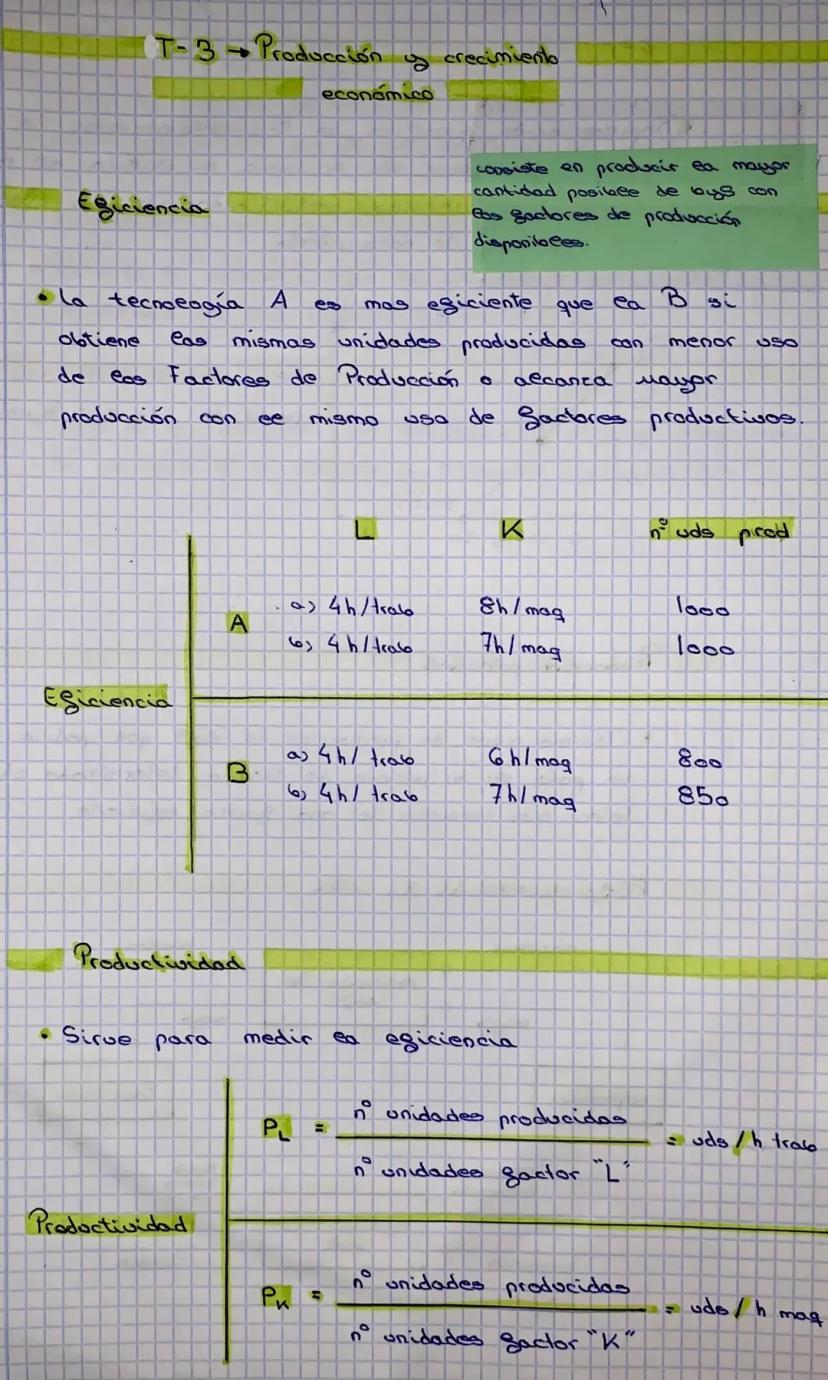 T-3 → Producción y crecimiento
económico
consiste en producir la mayor
cantidad posible de bys con
los factores de producción
disponibles.
Eficiencia
• La tecnología A es mas eficiente que la B si
obtiene las mismas unidades producidas con menor uso
de los Factores de Producción o alcanza mayor
producción con el mismo uso de factores productivos.
L K nº uds prod
A a) 4h/trab 8h/maq 1000
b) 4h/trab 7h/maq 1000
Eficiencia
B a) 4h/trab 6h/maq 800
b) 4h/trab 7h/maq 850
Productividad
• Sirve para medir la eficiencia
PL = nº unidades producidas = uds/h trab
nº unidades factor "L"
Productividad
PK = nº unidades producidas = uds/h maq
nº unidades factor "K"